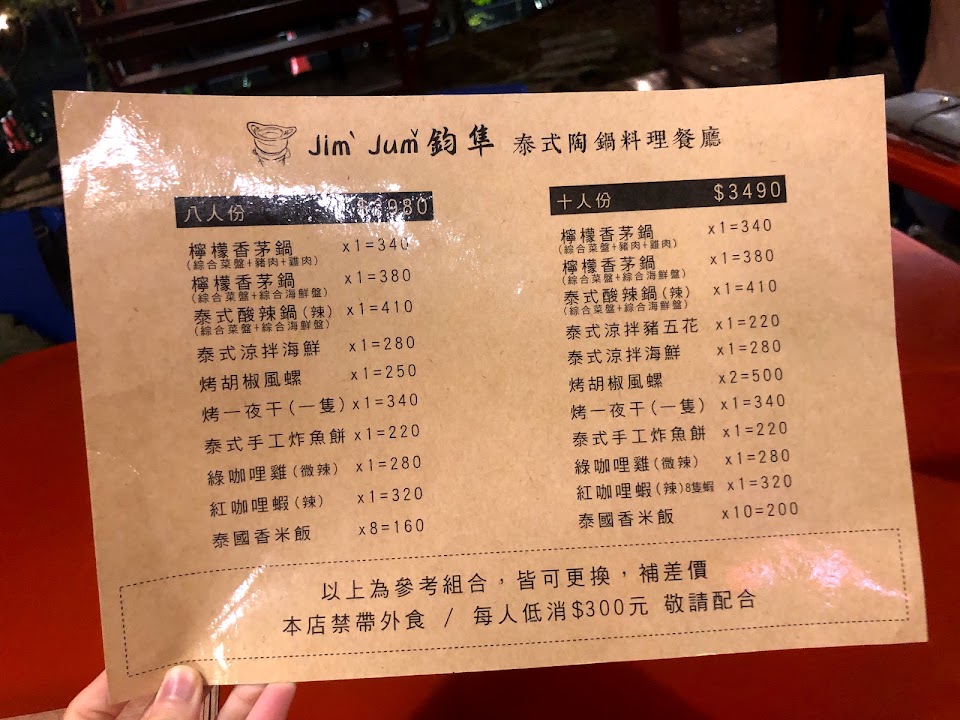 Jim Jum 鈞隼 泰式陶鍋料理餐廳
八人份 980
檸檬香茅鍋 x1=340
(綜合菜盤+豬肉+雞肉)
檸檬香茅鍋 x1=380
(綜合菜盤+綜合海鮮盤)
泰式酸辣鍋(辣) x1=410
(綜合菜盤+綜合海鮮盤)
泰式涼拌海鮮 x1=280
烤胡椒風螺 x1=250
烤一夜干(一隻) x1=340
泰式手工炸魚餅 x1=220
綠咖哩雞(微辣) x1=280
紅咖哩蝦(辣) x1=320
泰國香米飯 x8=160
十人份 $3490
檸檬香茅鍋 x1=340
(綜合菜盤+豬肉+雞肉)
檸檬香茅鍋 x1=380
(綜合菜盤+綜合海鮮盤)
泰式酸辣鍋(辣) x1=410
(綜合菜盤+綜合海鮮盤)
泰式涼拌豬五花 x1=220
泰式涼拌海鮮 x1=280
烤胡椒風螺 x2=500
烤一夜干(一隻) x1=340
泰式手工炸魚餅 x1=220
綠咖哩雞(微辣) x1=280
紅咖哩蝦(辣)8隻蝦 x1=320
泰國香米飯 x10=200
以上為參考組合，皆可更換，補差價
本店禁帶外食 / 每人低消$300元 敬請配合